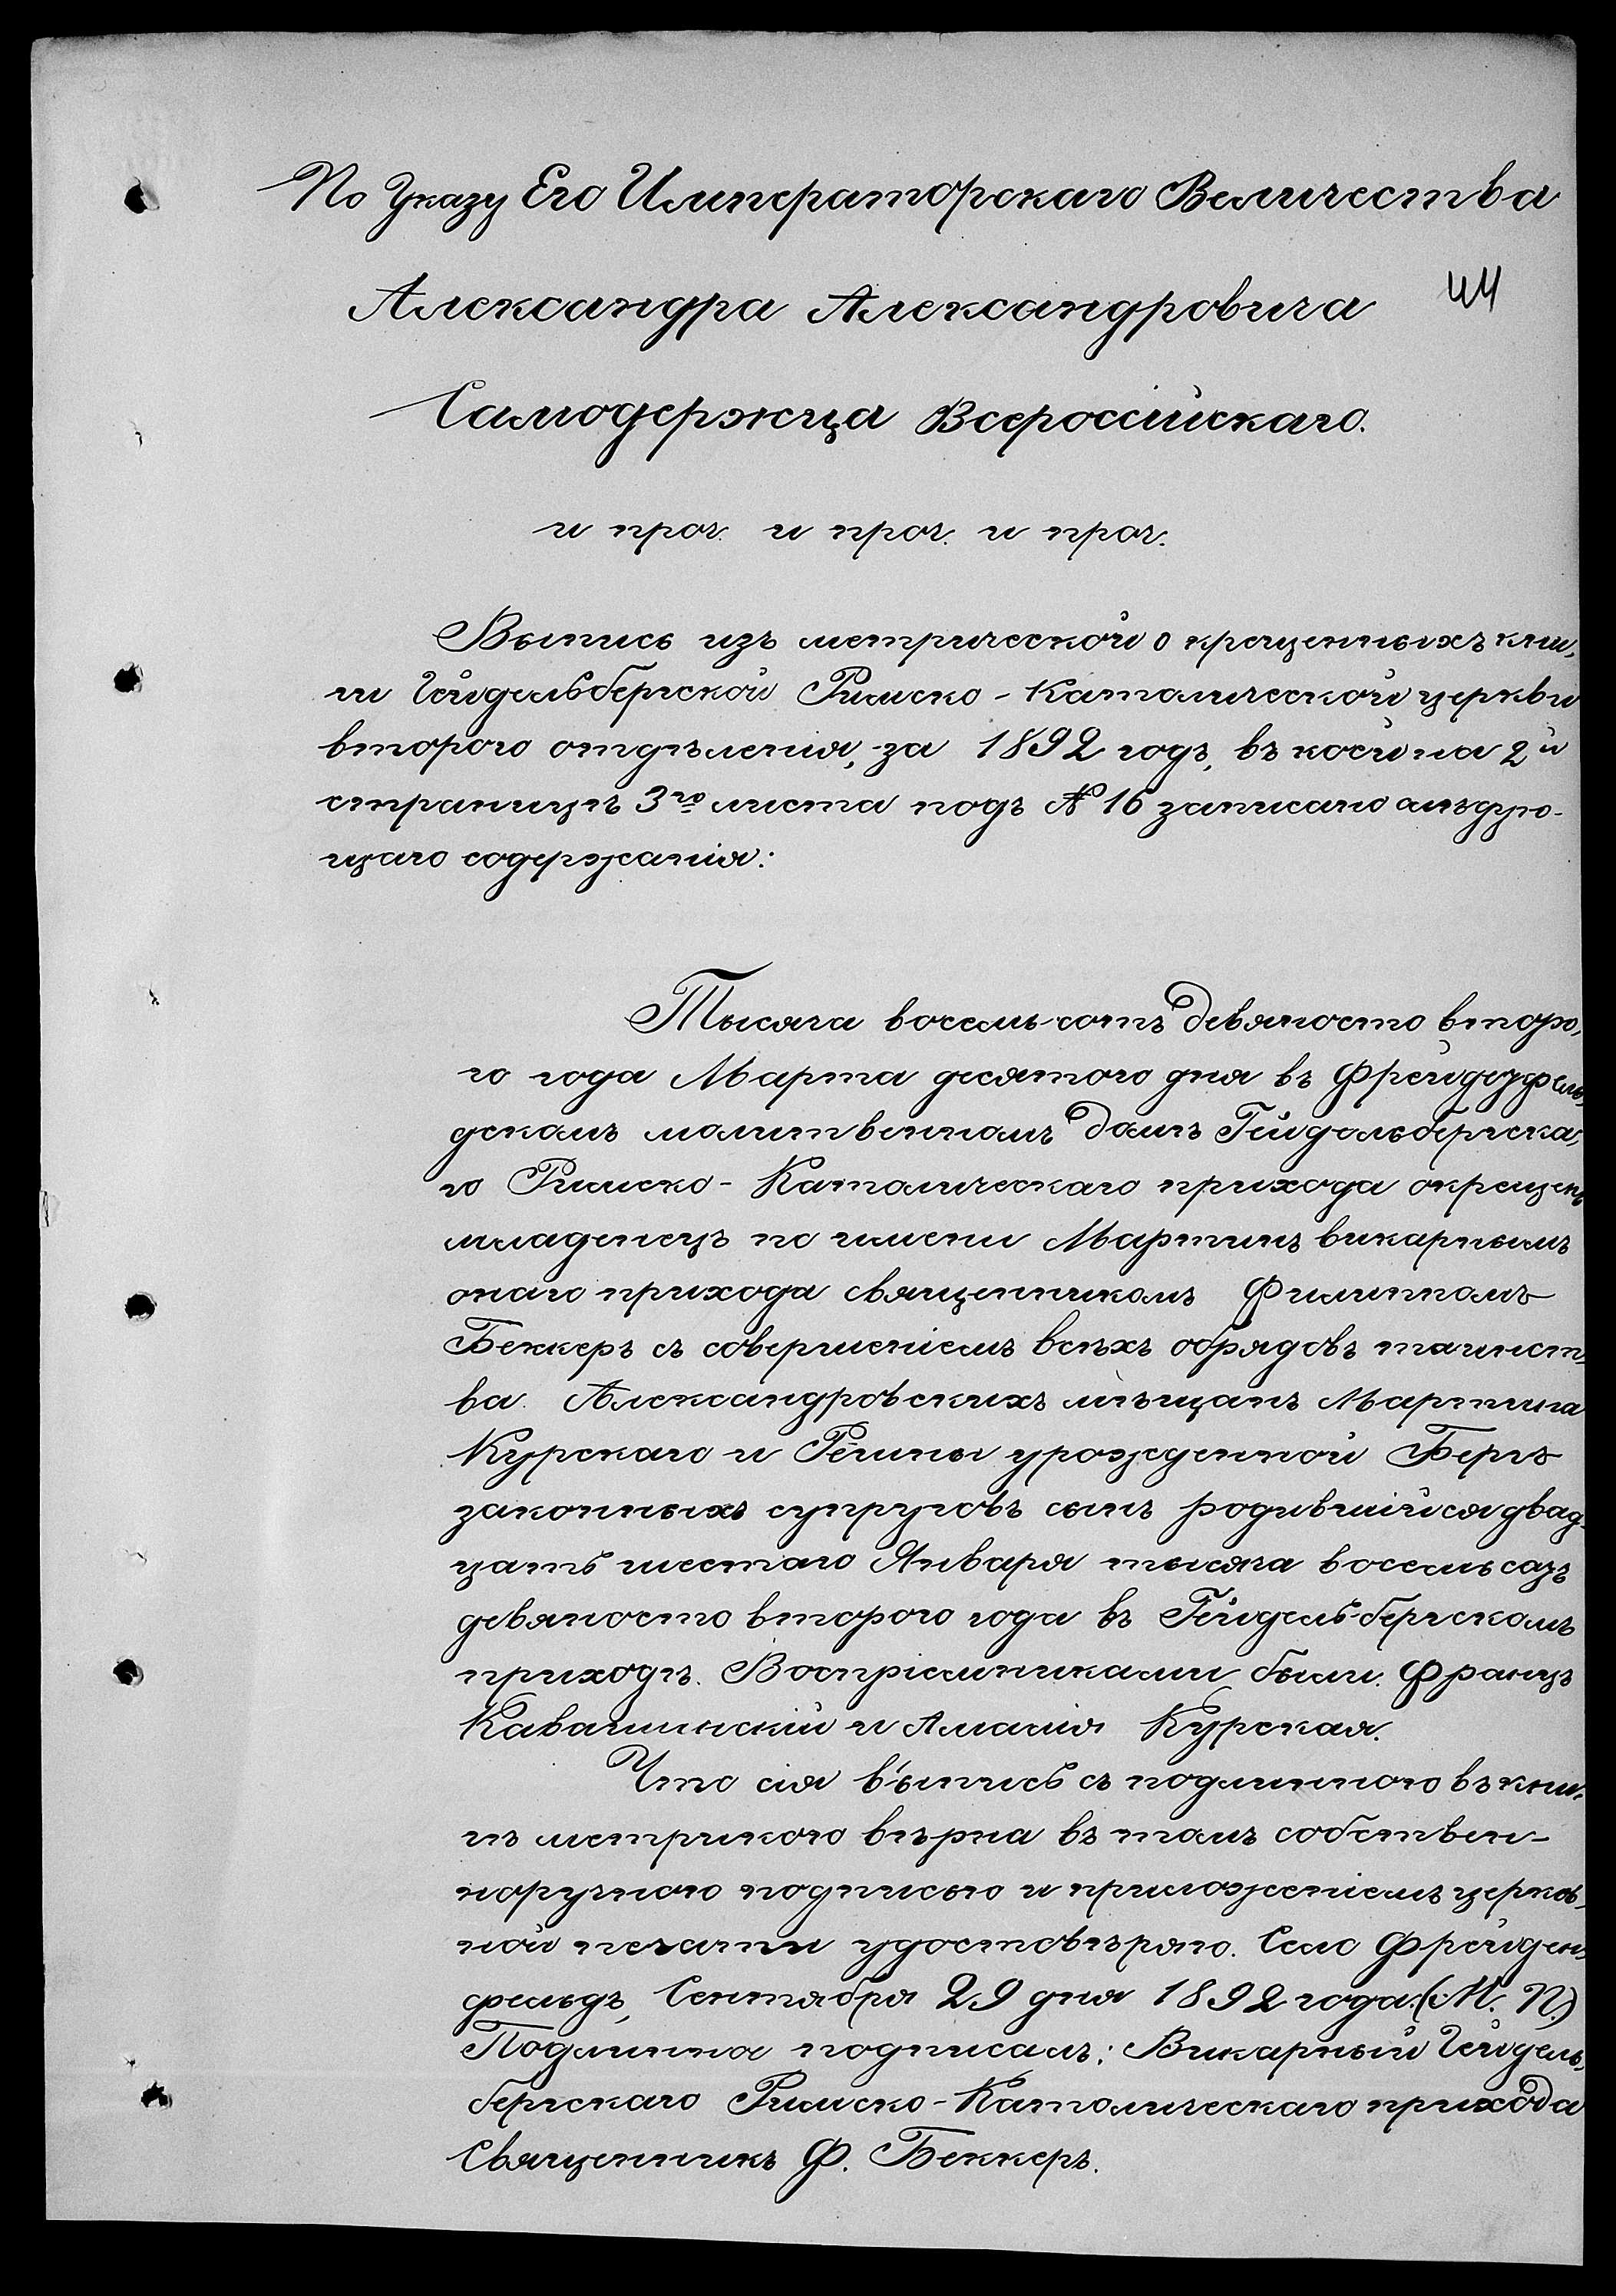 По Указу Его Императорскаго Величества
Александра Александровича
44
Самодержца Всероссійскаго.
и проч. и проч. и проч.
Выпись изъ метрической о крещенныхъ кни-
ги Гейдельбергской Римско-Католической церкви
второго отдѣленія, за 1892 годъ, въ коей на 2й
страницѣ 3го листа подъ № 16 записано слѣдую-
щаго содержанія:
Тысяча восемь-сотъ девяносто второ-
го года Марта десятого дня въ Фрейдефель-
дскомъ молитвенномъ домѣ Гейдельбергска-
го Римско-Католическаго прихода окрещенъ
младенецъ по имени Мартинъ викарнымъ
онаго прихода священникомъ Филиппомъ
Беккеръ съ совершеніемъ всѣхъ обрядовъ таинст-
ва. Александровскихъ мѣщанъ Мартина
Курскаго и Регины урожденной Бергъ
законныхъ супруговъ сынъ родившійся двад-
цать шестаго Января тысяча восемьсотъ
девяносто второго года въ Гейдель-бергскомъ
приходѣ. Воспріемниками были: Францъ
и Амалія Курская.
Что сія выпись съ подлинного въ кни-
гѣ метрикого вѣрна въ томъ собствен-
норучною подписью и приложеніемъ церков-
ной печати удостовѣряю. Село Фрейден-
фельдъ, Сентября 29 дня 1892 года. (М. П.)
Подлинна подписалъ: Викарный Гейдель-
бергскаго Римско-Католическаго прихода
Священникъ Ф. Беккеръ.